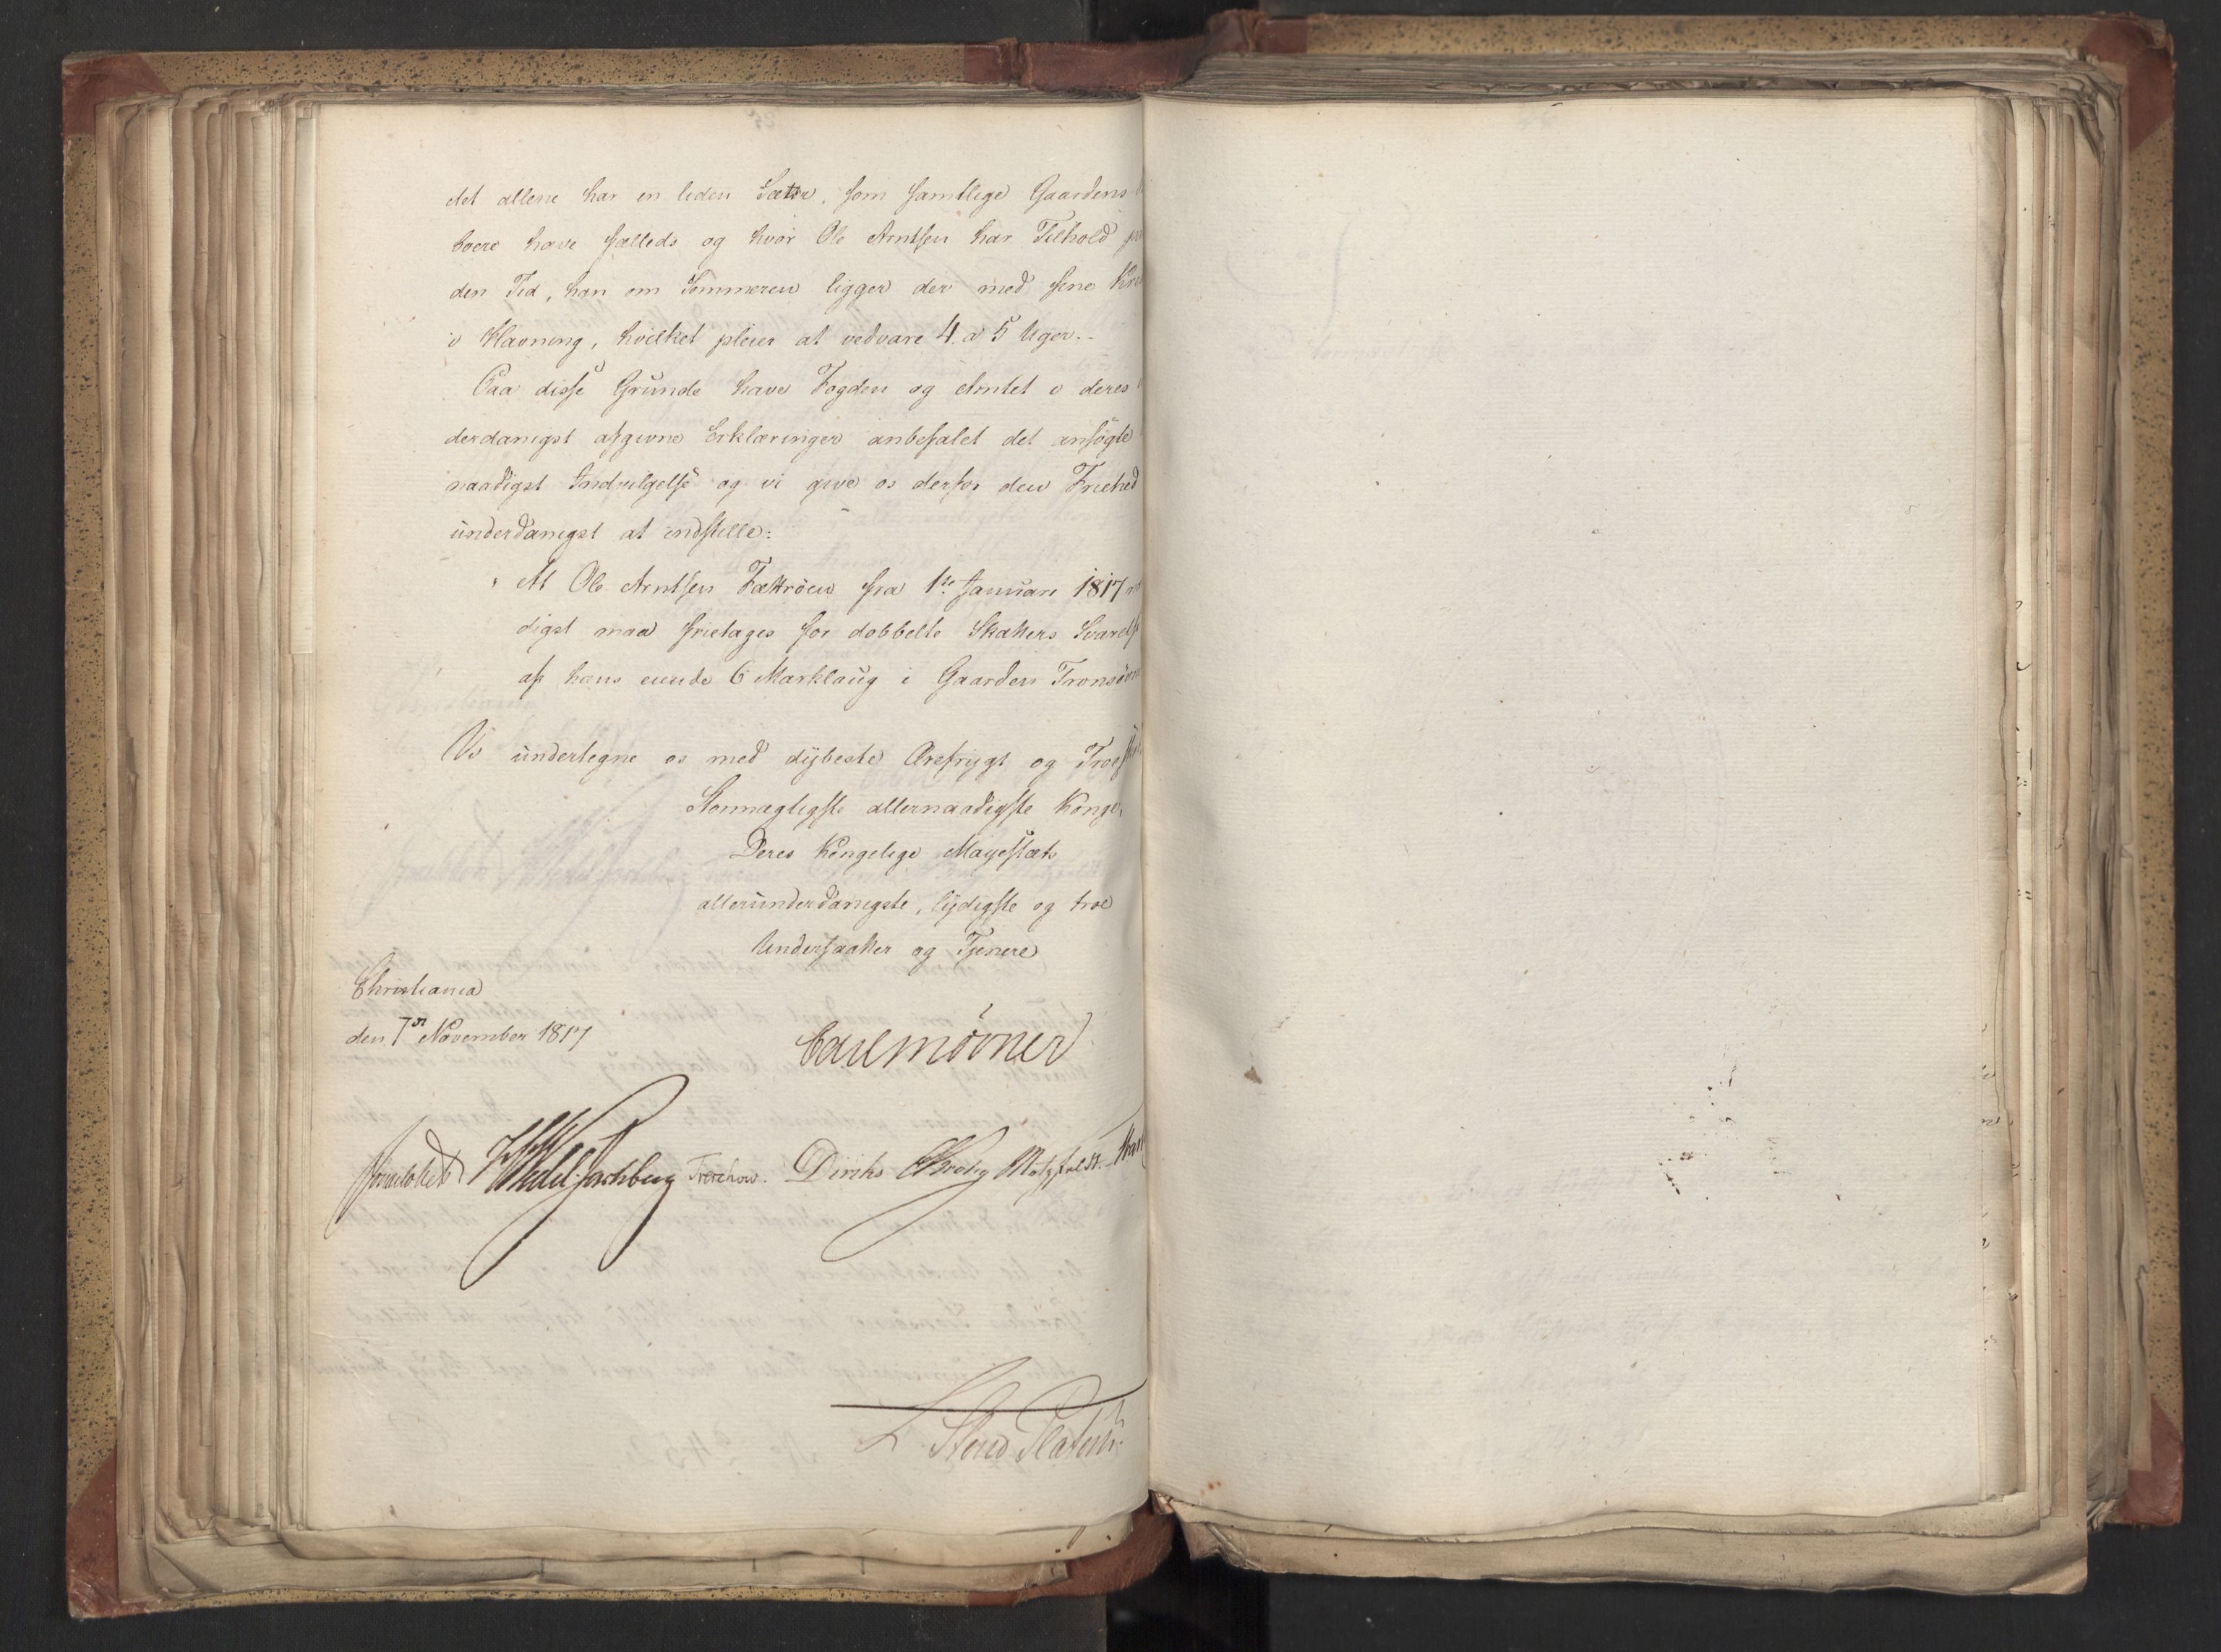 det allene har en liden Sæter, som samtlige Gaardens
boere have fælleds og hvor Ole Arntsen har Tilhold
den Tid, han om Sommeren ligger der med sine
i Havning, hvilket pleier at vedvare 4 a 5 Uger.
Paa disse Grunde have Fogden og Amtet i deres
derdanigst afgivne Erklæringer anbefalet det ansögte
naadigst Indvilgelse og vi give os derfor den Friehed
underdanigst at indstille:
At Ole Arntsen Fættröen fra 1ste Januari 1817
digst maa frietages for dobbelte Skatters Svarelse
af hans eiende 6 Marklaug i Gaarden
Vi undertegne os med dybeste Ærefrygt og
Stormægtigste allernaadigste Konge,
Deres Kongelige Mayestæts
allerunderdanigste, lydigste og troe
Undersaatter og Tjenere
Christiania
den 7de November 1817
Carl Mörner
Wedel Jarlsberg Treschow. Diriks Krohg Motzfeldt.